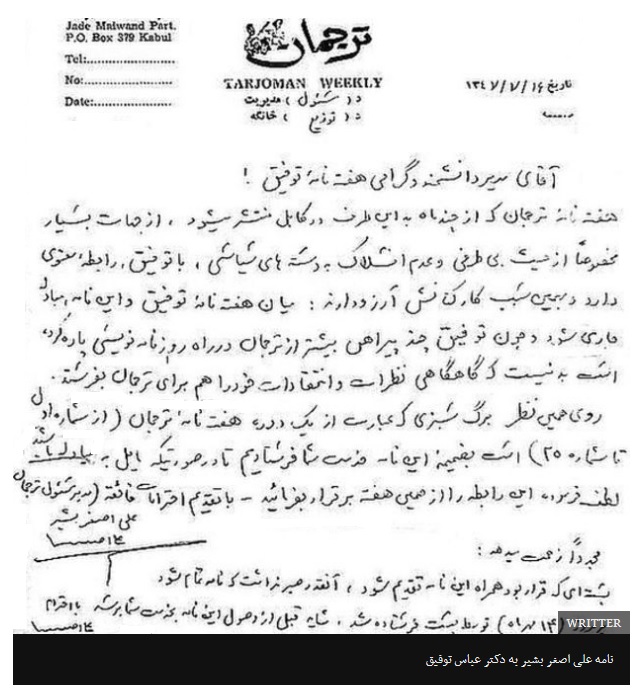 Jade Maiwand Part.
P.O. Box 379 Kabul
Tel:
No:
Date:
ترجمان
TARJOMAN WEEKLY
د ( مسئول ) مدیریت
د ( توزیع ) خانگه
تاریخ ۱۳۴۷/۷/۱۶
آقای مدیر دانشمند و گرامی هفته نامهٔ توفیق !
هفته نامهٔ ترجمان که از چند ماه به این طرف در کابل منتشر میشود ، از جهات بسیار
مخصوصاً از حیث بی طرفی و عدم انسلاک به دسته های سیاسی ، با توفیق رابطهٔ معنوی
دارد و بهمین سبب کارکنانش آرزو دارند : میان هفته نامهٔ توفیق و این نامه مبادله
جاری شود و چون توفیق چند پیراهن بیشتر از ترجمان در راه روزنامه نویسی پاره کرده
است بد نیست که گاهگاهی نظرات و انتقادات خود را هم برای ترجمان بفرستد .
روی همین نظر برگ سبزی که عبارت از یک دوره هفته نامهٔ ترجمان ( از شماره اول
تا شماره ۲۵ ) است بضمیمهٔ این نامه خدمت شما فرستادیم تا در صورتیکه مایل به مبادله باشید
لطف فرموده این رابطه را از همین هفته برقرار بفرمائید - با تقدیم احترامات فائقه ( مدیر مسئول ترجمان
علی اصغر بشیر
مجدداً زحمت میدهد :
بسته ای که قرار بود همراه این نامه تقدیم شود ، آنقدر صبر نداشت که نامه تمام شود
( ۱۴ توسط پست فرستاده شد . شاید قبل از وصول این نامه بخدمت شما برسد با احترام
WRITTER
نامه علی اصغر بشیر به دکتر عباس توفیق